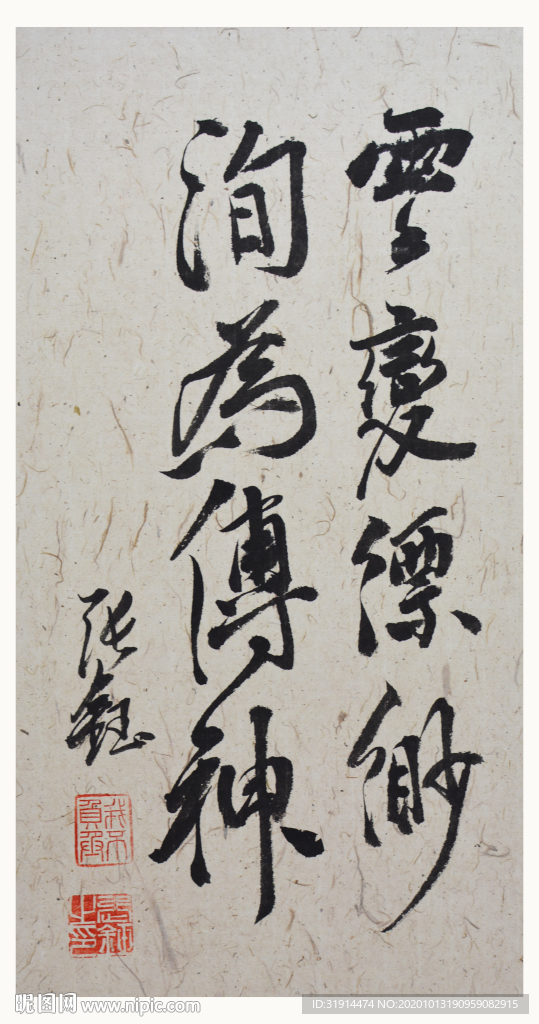 雲變縹緲
洵為傳神
張鈺
張鈺之印
昵图网 www.nipic.com
ID:31914474 NO:20201013190959082915